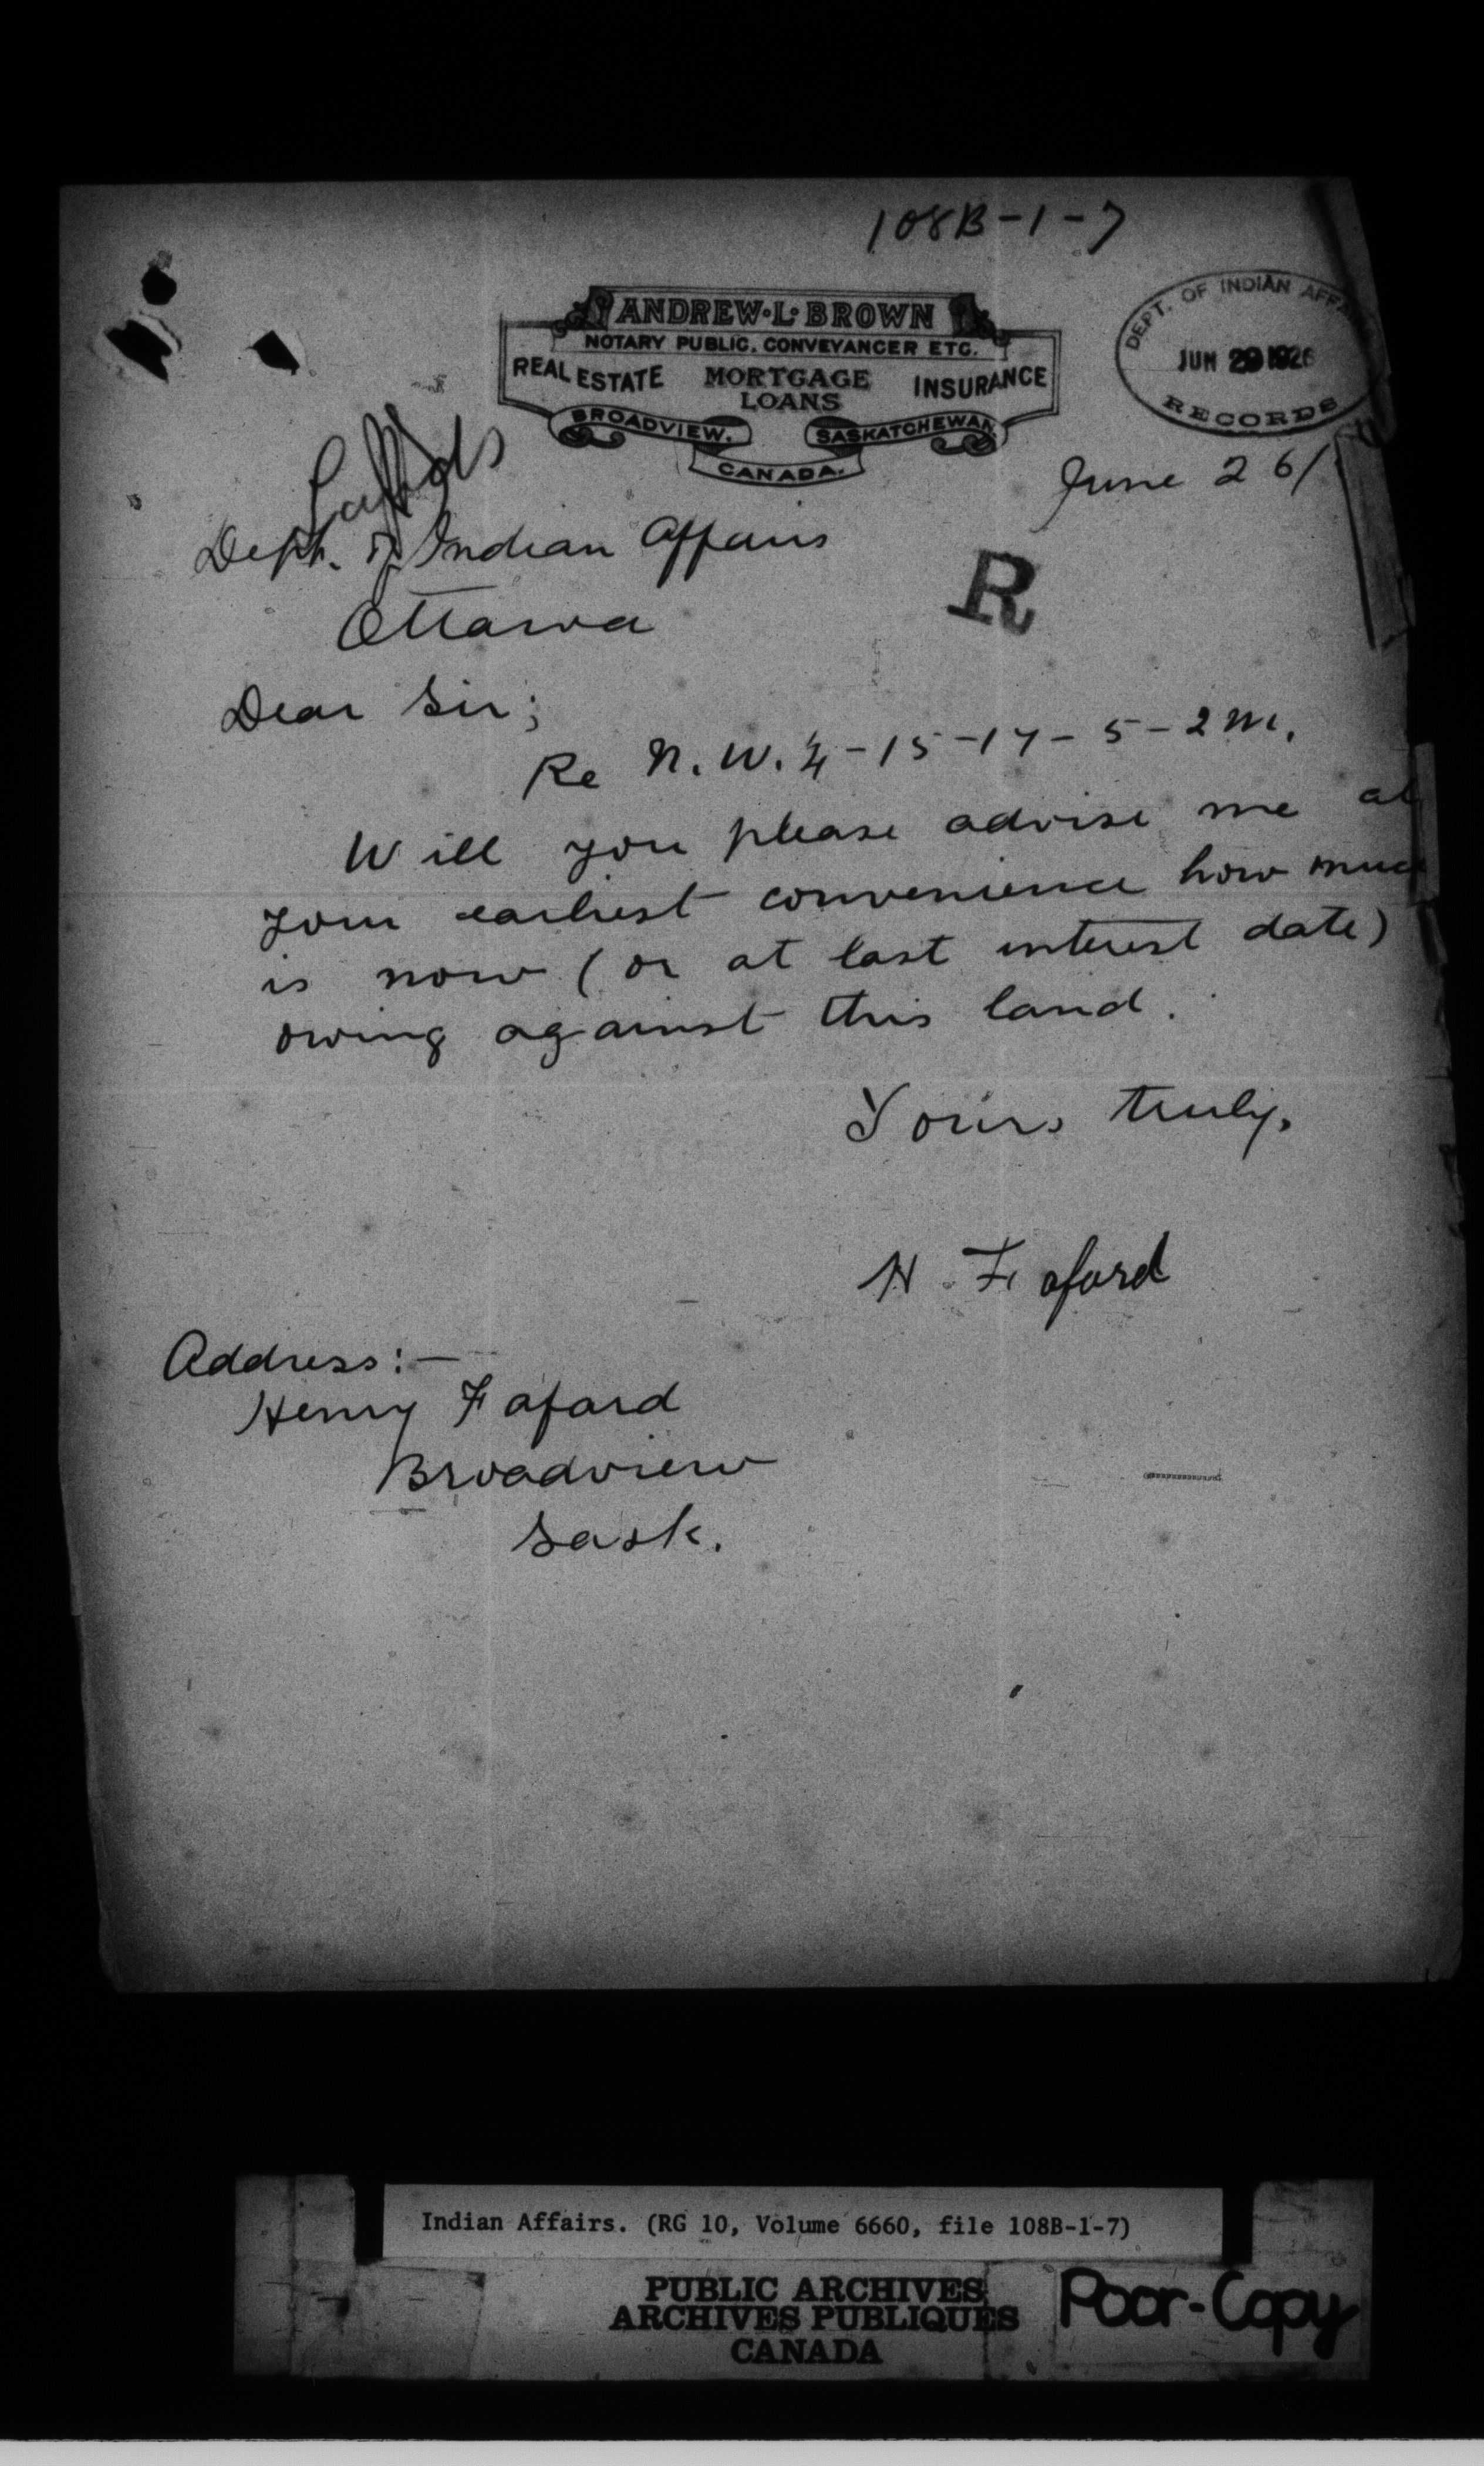 108B-1-7
ANDREW·L·BROWN
NOTARY PUBLIC, CONVEYANCER ETC.
REAL ESTATE MORTGAGE LOANS INSURANCE
BROADVIEW. SASKATCHEWAN,
CANADA.
DEPT. OF INDIAN AFFAIRS
JUN 29 1926
RECORDS
June 26/
Dept. of Indian Affairs
Ottawa
R
Dear Sir;
Re N.W. ¼-15-17-5-2 M.
Will you please advise me at
your earliest convenience how much
is now (or at last interest date)
owing against this land.
Yours truly,
H. Faford
Address:—
Henry Fafard
Broadview
Sask.
Indian Affairs. (RG 10, Volume 6660, file 108B-1-7)
PUBLIC ARCHIVES
ARCHIVES PUBLIQUES
CANADA
Poor-Copy